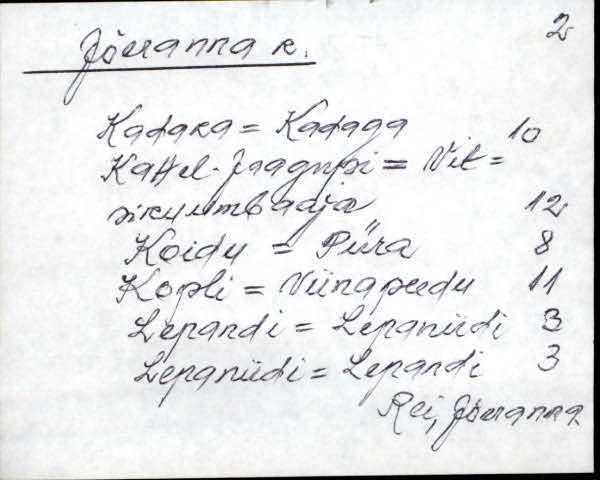 Jõeranna k. 2
Kadaka = Kadaga 10
Kattel-Jaagupi = Vit=
sikummardaja 12
Koidu = Püra 8
Kopli = Viinapuudu 11
Lepandi = Lepanüdi 3
Lepanüdi = Lepandi 3
Rei, Jõeranna